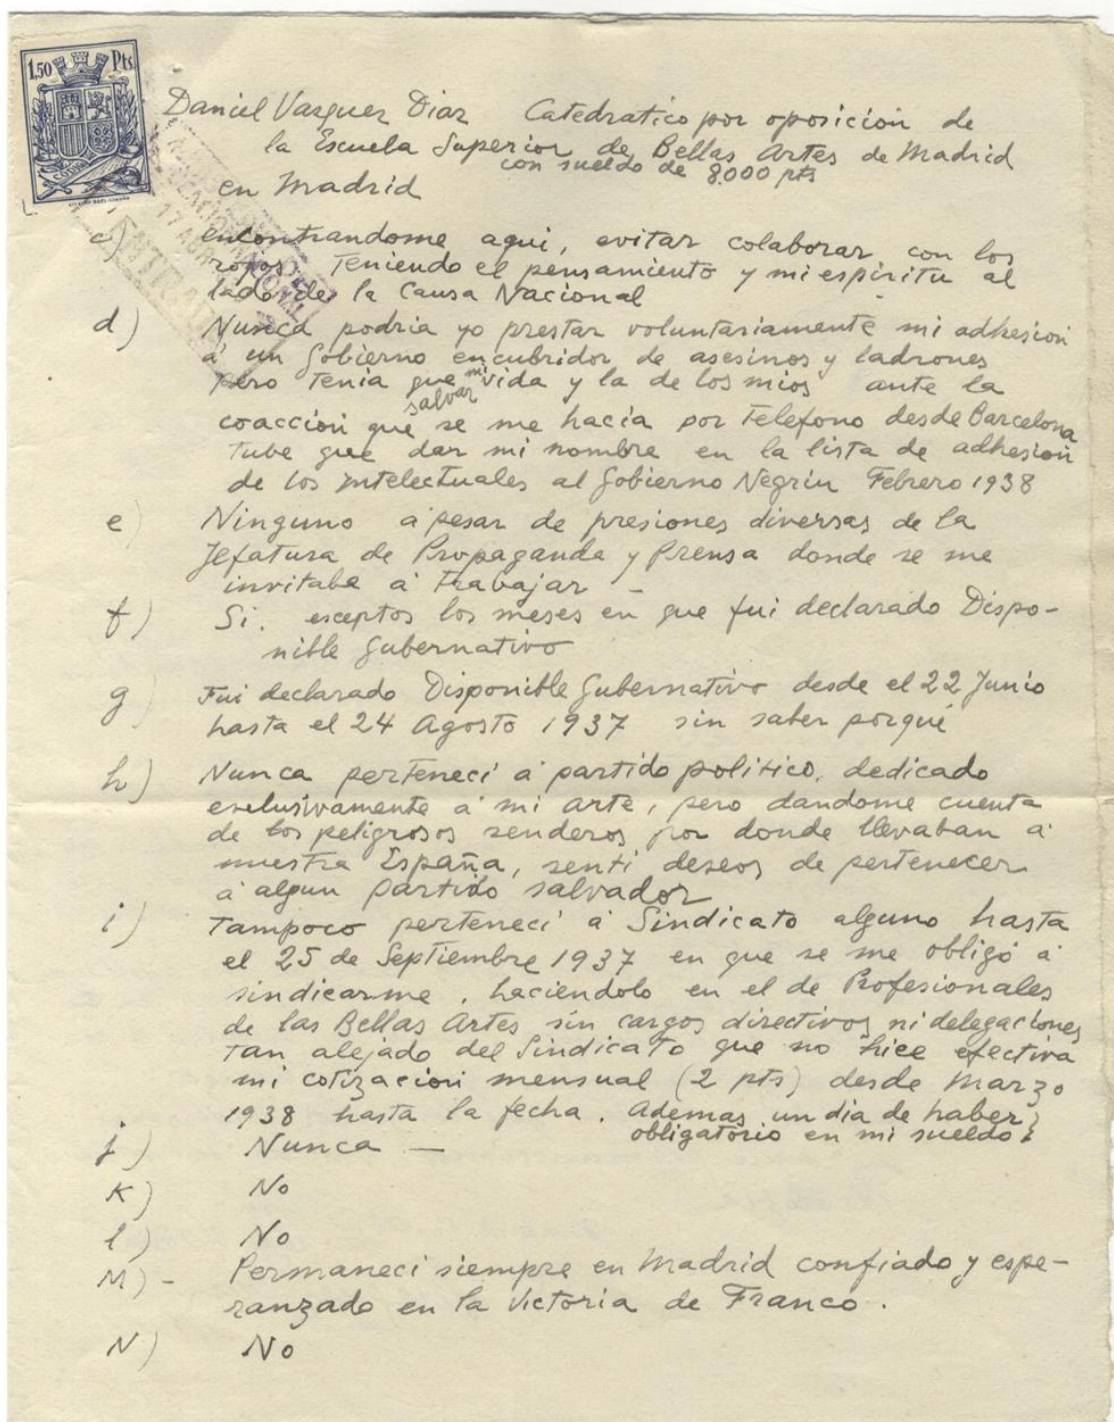 1,50 Pts.
Daniel Vazquez Diaz Catedratico por oposicion de
la Escuela Superior de Bellas Artes de Madrid
con sueldo de 8.000 pts
en Madrid
c) encontrandome aqui, evitar colaborar con los
rojos. Teniendo el pensamiento y mi espiritu al
lado de la Causa Nacional
d) Nunca podria yo prestar voluntariamente mi adhesion
á un Gobierno encubridor de asesinos y ladrones
pero tenia que salvar mi vida y la de los mios ante la
coacción que se me hacia por telefono desde Barcelona
tube que dar mi nombre en la lista de adhesion
de los intelectuales al Gobierno Negrin Febrero 1938
e) Ninguno á pesar de presiones diversas de la
Jefatura de Propaganda y Prensa donde se me
invitaba á trabajar –
f) Si. esceptos los meses en que fui declarado Dispo-
nible Gubernativo
g) Fui declarado Disponible Gubernativo desde el 22 Junio
hasta el 24 Agosto 1937 sin saber porqué
h) Nunca perteneci á partido politico, dedicado
exclusivamente á mi arte, pero dandome cuenta
de los peligrosos senderos por donde llevaban á
nuestra España, senti deseos de pertenecer
á algun partido salvador
i) Tampoco perteneci á Sindicato alguno hasta
el 25 de Septiembre 1937 en que se me obligó á
sindicarme, haciéndolo en el de Profesionales
de las Bellas Artes sin cargos directivos ni delegaciones
tan alejado del Sindicato que no hice efectiva
mi cotización mensual (2 pts) desde Marzo
1938 hasta la fecha. Ademas un dia de haber
obligatorio en mi sueldo
j) Nunca —
K) No
l) No
M) - Permaneci siempre en Madrid confiado y espe-
ranzado en la Victoria de Franco.
N) No